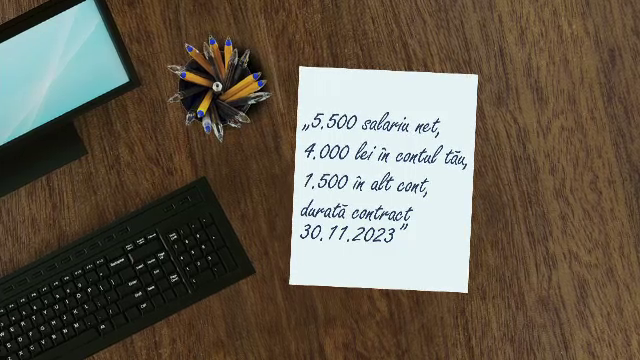 „5.500 salariu net,
4.000 lei în contul tău,
1.500 în alt cont,
durată contract
30.11.2023”